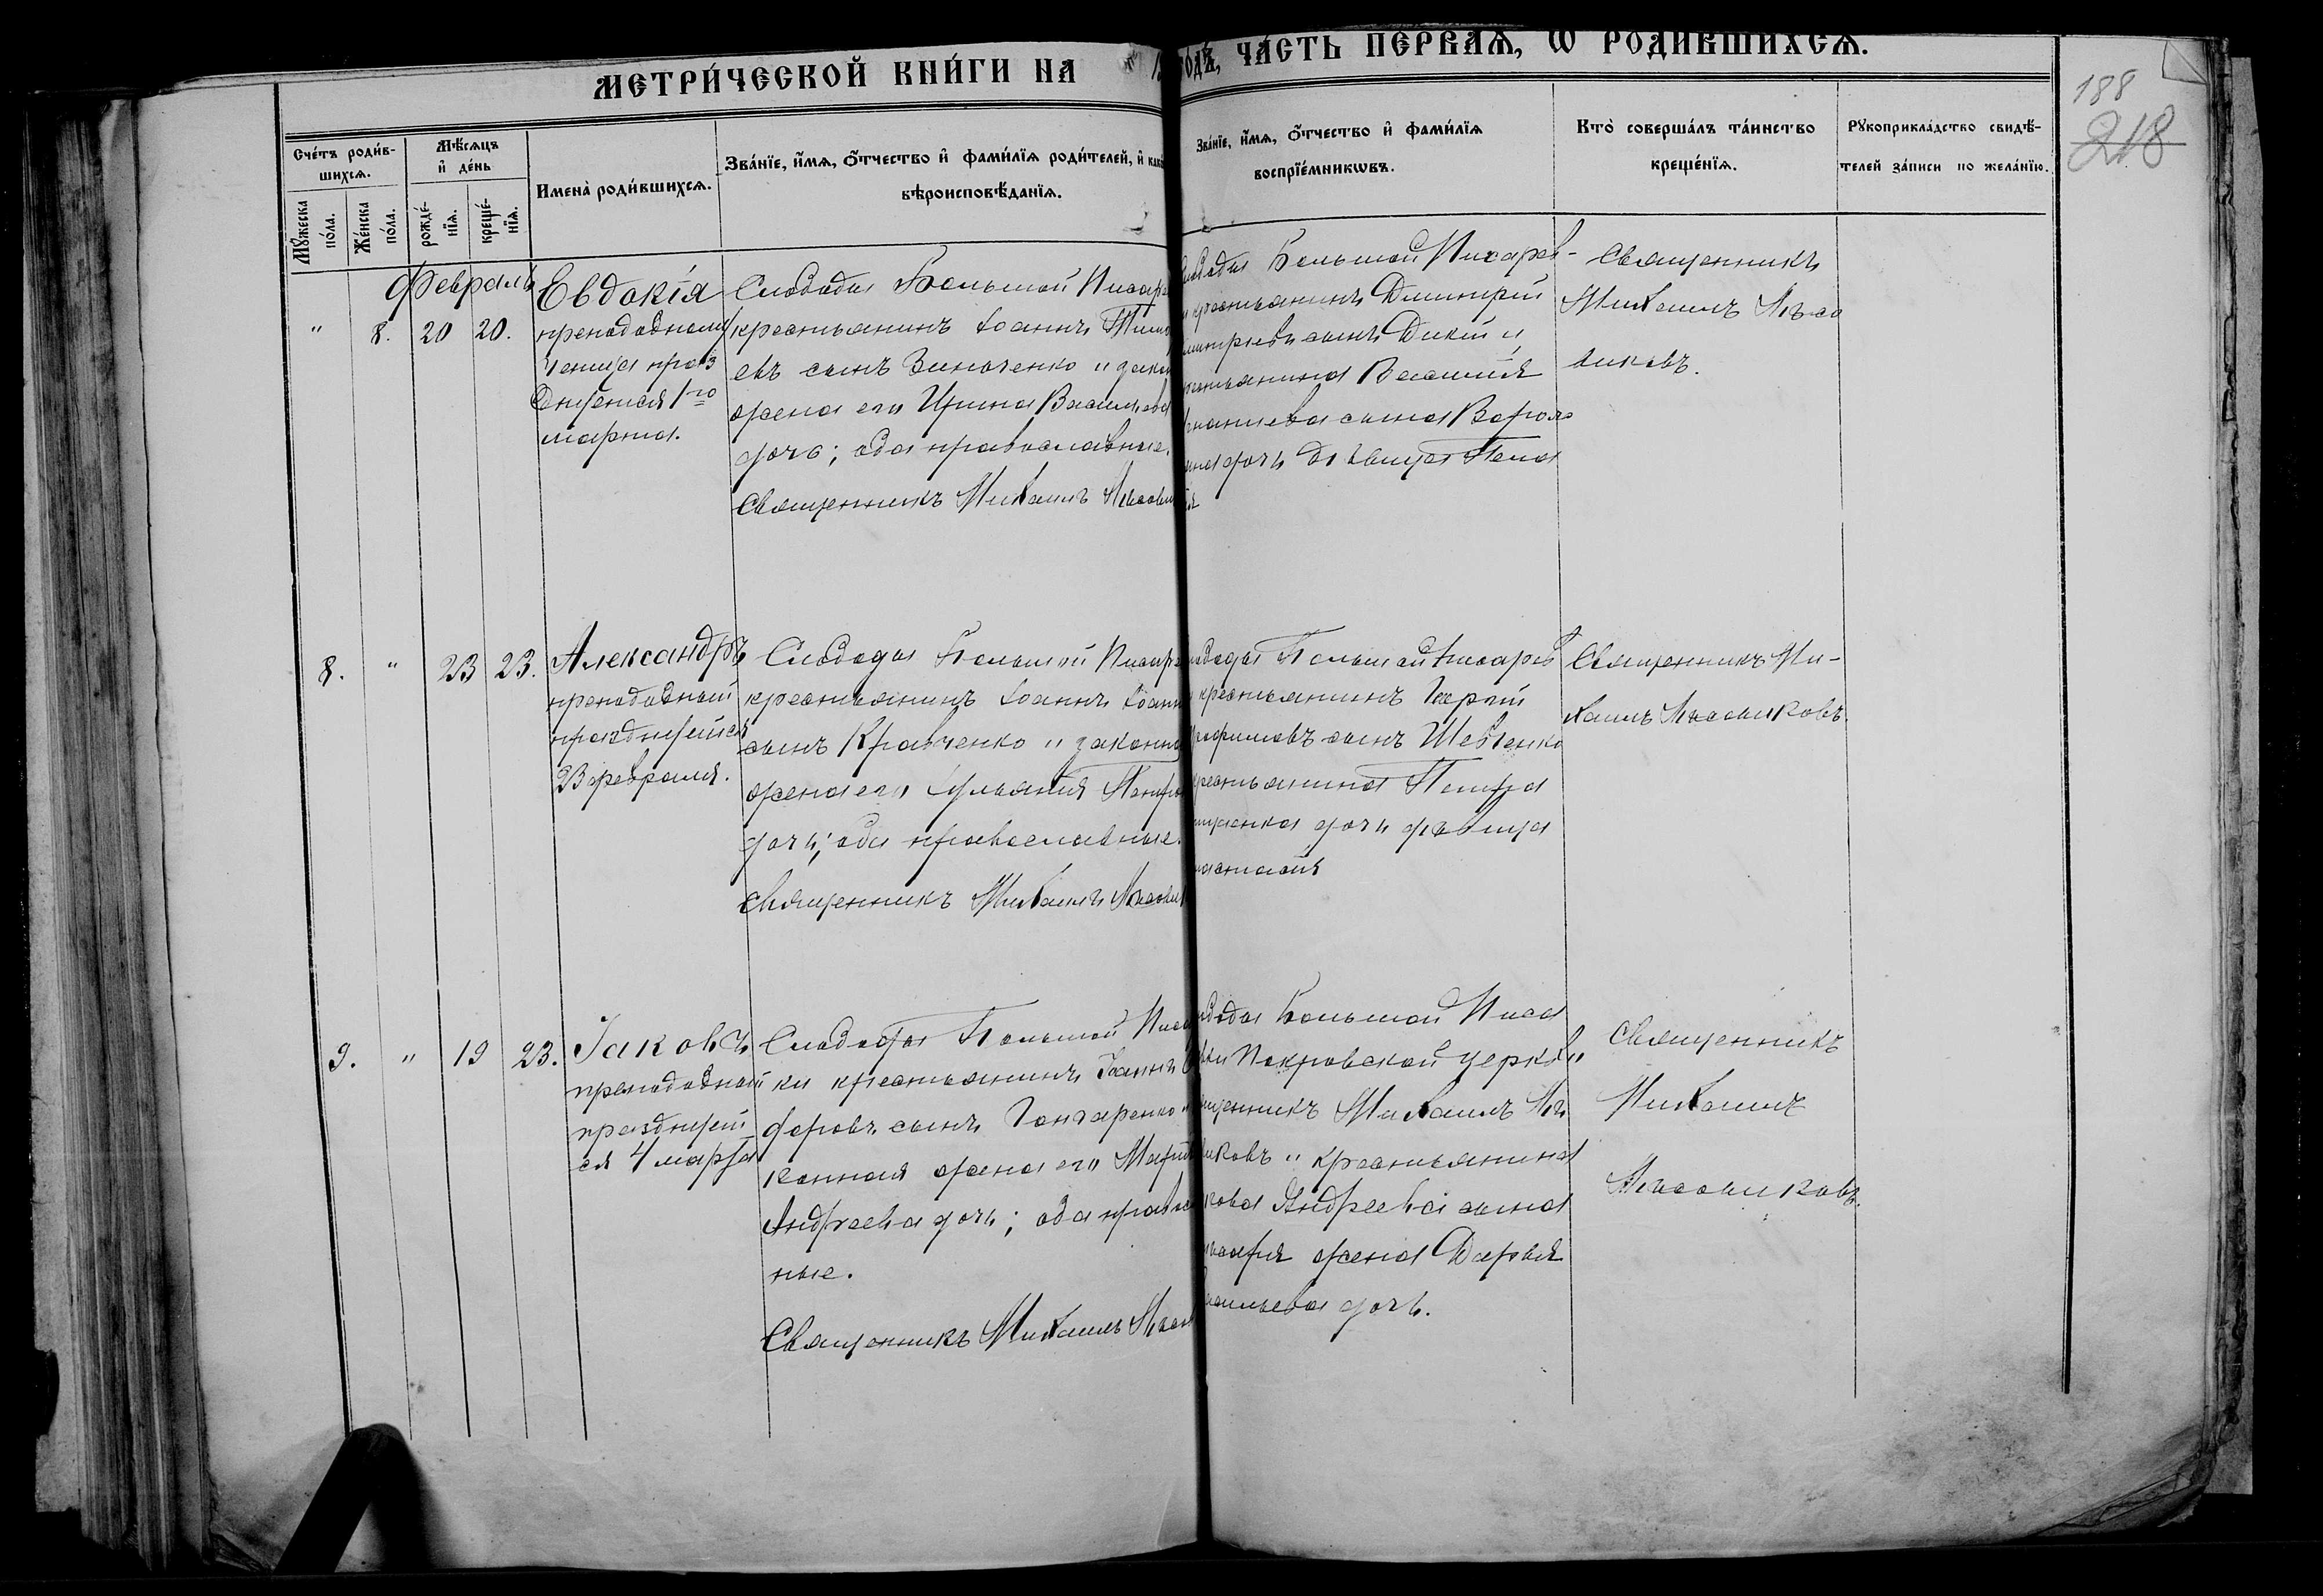 МЕТРИ́ЧЕСКОЙ КНИ́ГИ НА
ГОДЪ, ЧА́СТЬ ПЕРВАѦ, Ѡ РОДИ́ВШИХСѦ.
188
218
Сче́тъ роди́в-
шихсѧ.
Мꙋ́жеска по́ла.
Же́нска по́ла.
Мѣ́сѧцъ
и҆ де́нь
рожде́-
нїѧ.
креще́-
нїѧ.
Имена̀ роди́вшихсѧ.
Зва́нїе, и҆́мѧ, ѻ҆́тчество и҆ фами́лїѧ роди́телей, и҆ как
вѣроисповѣ́данїѧ.
Зва́нїе, и҆́мѧ, ѻ҆́тчество и҆ фами́лїѧ
воспрїе́мникѡвъ.
Кто̀ соверша́лъ та́инство
креще́нїѧ.
Рꙋкоприкла́дство свидѣ́-
телей за́писи по жела́нїю.
Февраль
" 8. 20 20.
Евдокія
преподобному
ченица праз
днуемая 1го
марта.
Слободы Большой Писар
крестьянинъ Іоаннъ Тимо
евъ сынъ Зинченко и закон
жена его Ирина Васильева
дочь; оба православные.
Священникъ Михаилъ Лѣсови
слободы Большой Писарев-
и крестьянинъ Димитрій
имитріевъ сынъ Дикій и
рестьянина Василія
сына
дочь дѣвица
Священникъ
Михаилъ Лѣсо
виковъ.
8. " 23 23.
Александръ
преподобный
празднуейся
23 февраля.
Слободы Большой Писар
крестьянинъ Іоаннъ Іоанн
сынъ Кравченко и законна
жена его Іуліанія Петро
дочь; оба православные.
Священникъ Михаилъ Лѣсови
ободы Большой Писарев
и крестьянинъ
рофимовъ сынъ Шевченко
крестьянина Петра
дочь дѣвица
настасія
Священникъ Ми-
хаилъ Лѣсовиковъ.
9. " 19 23.
Іаковъ
преподобный
празднуей
ся 4 марта
Слободы Большой Писа
ки крестьянинъ Іоаннъ
доровъ сынъ Гончаренко и
конная жена его Марія
Андреева дочь; оба правос
ные.
Священникъ Михаилъ Лѣсов
ободы Большой Писа
вки Покровской церкви
щенникъ Михаилъ Лѣ
виковъ и крестьянина
кова Андреева сына
жена Дарья
асильева дочь.
Священникъ
Михаилъ
Лѣсовиковъ.